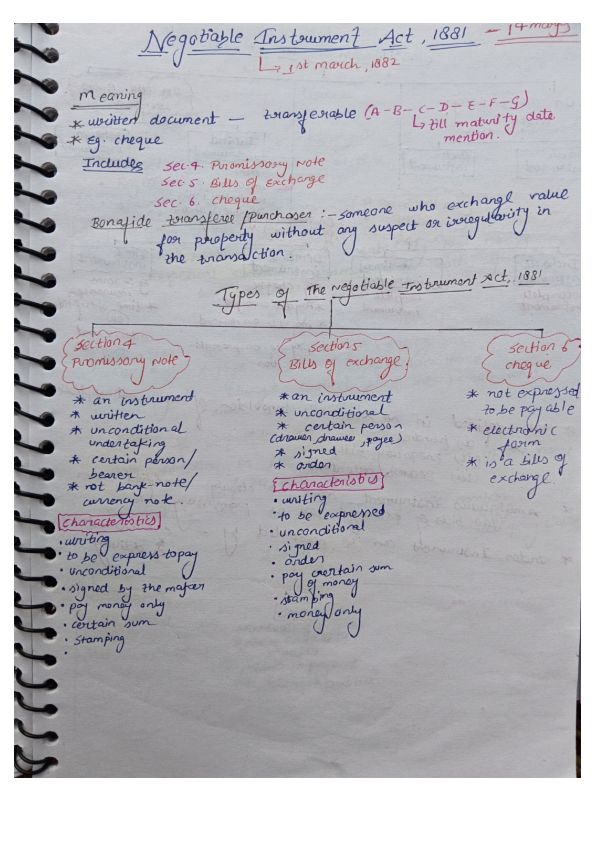 Negotiable Instrument Act, 1881 - 14 marks
↳ 1st march, 1882
Meaning
* written document - transferable (A-B-C-D-E-F-G)
↳ till maturity date mention.
* Eg. cheque
Includes Sec.4. Promissory Note
Sec.5. Bills of Exchange
Sec 6. cheque
Bonafide transferee/purchaser :- someone who exchange value
for property without any suspect or irregularity in
the transaction.
Types of The Negotiable Instrument Act, 1881
Section 4
Promissory Note
* an instrument
* written
* unconditional
undertaking
* certain person/
bearer
* not bank-note/
currency note.
Characteristics
• writing
• to be express to pay
• unconditional
• signed by the maker
• pay money only
• certain sum
• stamping
•
Section 5
Bills of exchange
* an instrument
* unconditional
* certain person
(drawer, drawee, payee)
* signed
* order
Characteristics
• writing
• to be expressed
• unconditional
• signed
• order
• pay certain sum
of money
• stamping
• money only
Section 6
cheque
* not expressed
to be payable
* electronic
form
* is a bills of
exchange.